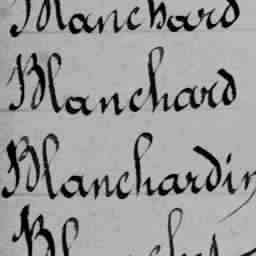 Blanchard
Blanchard
Blanchardin